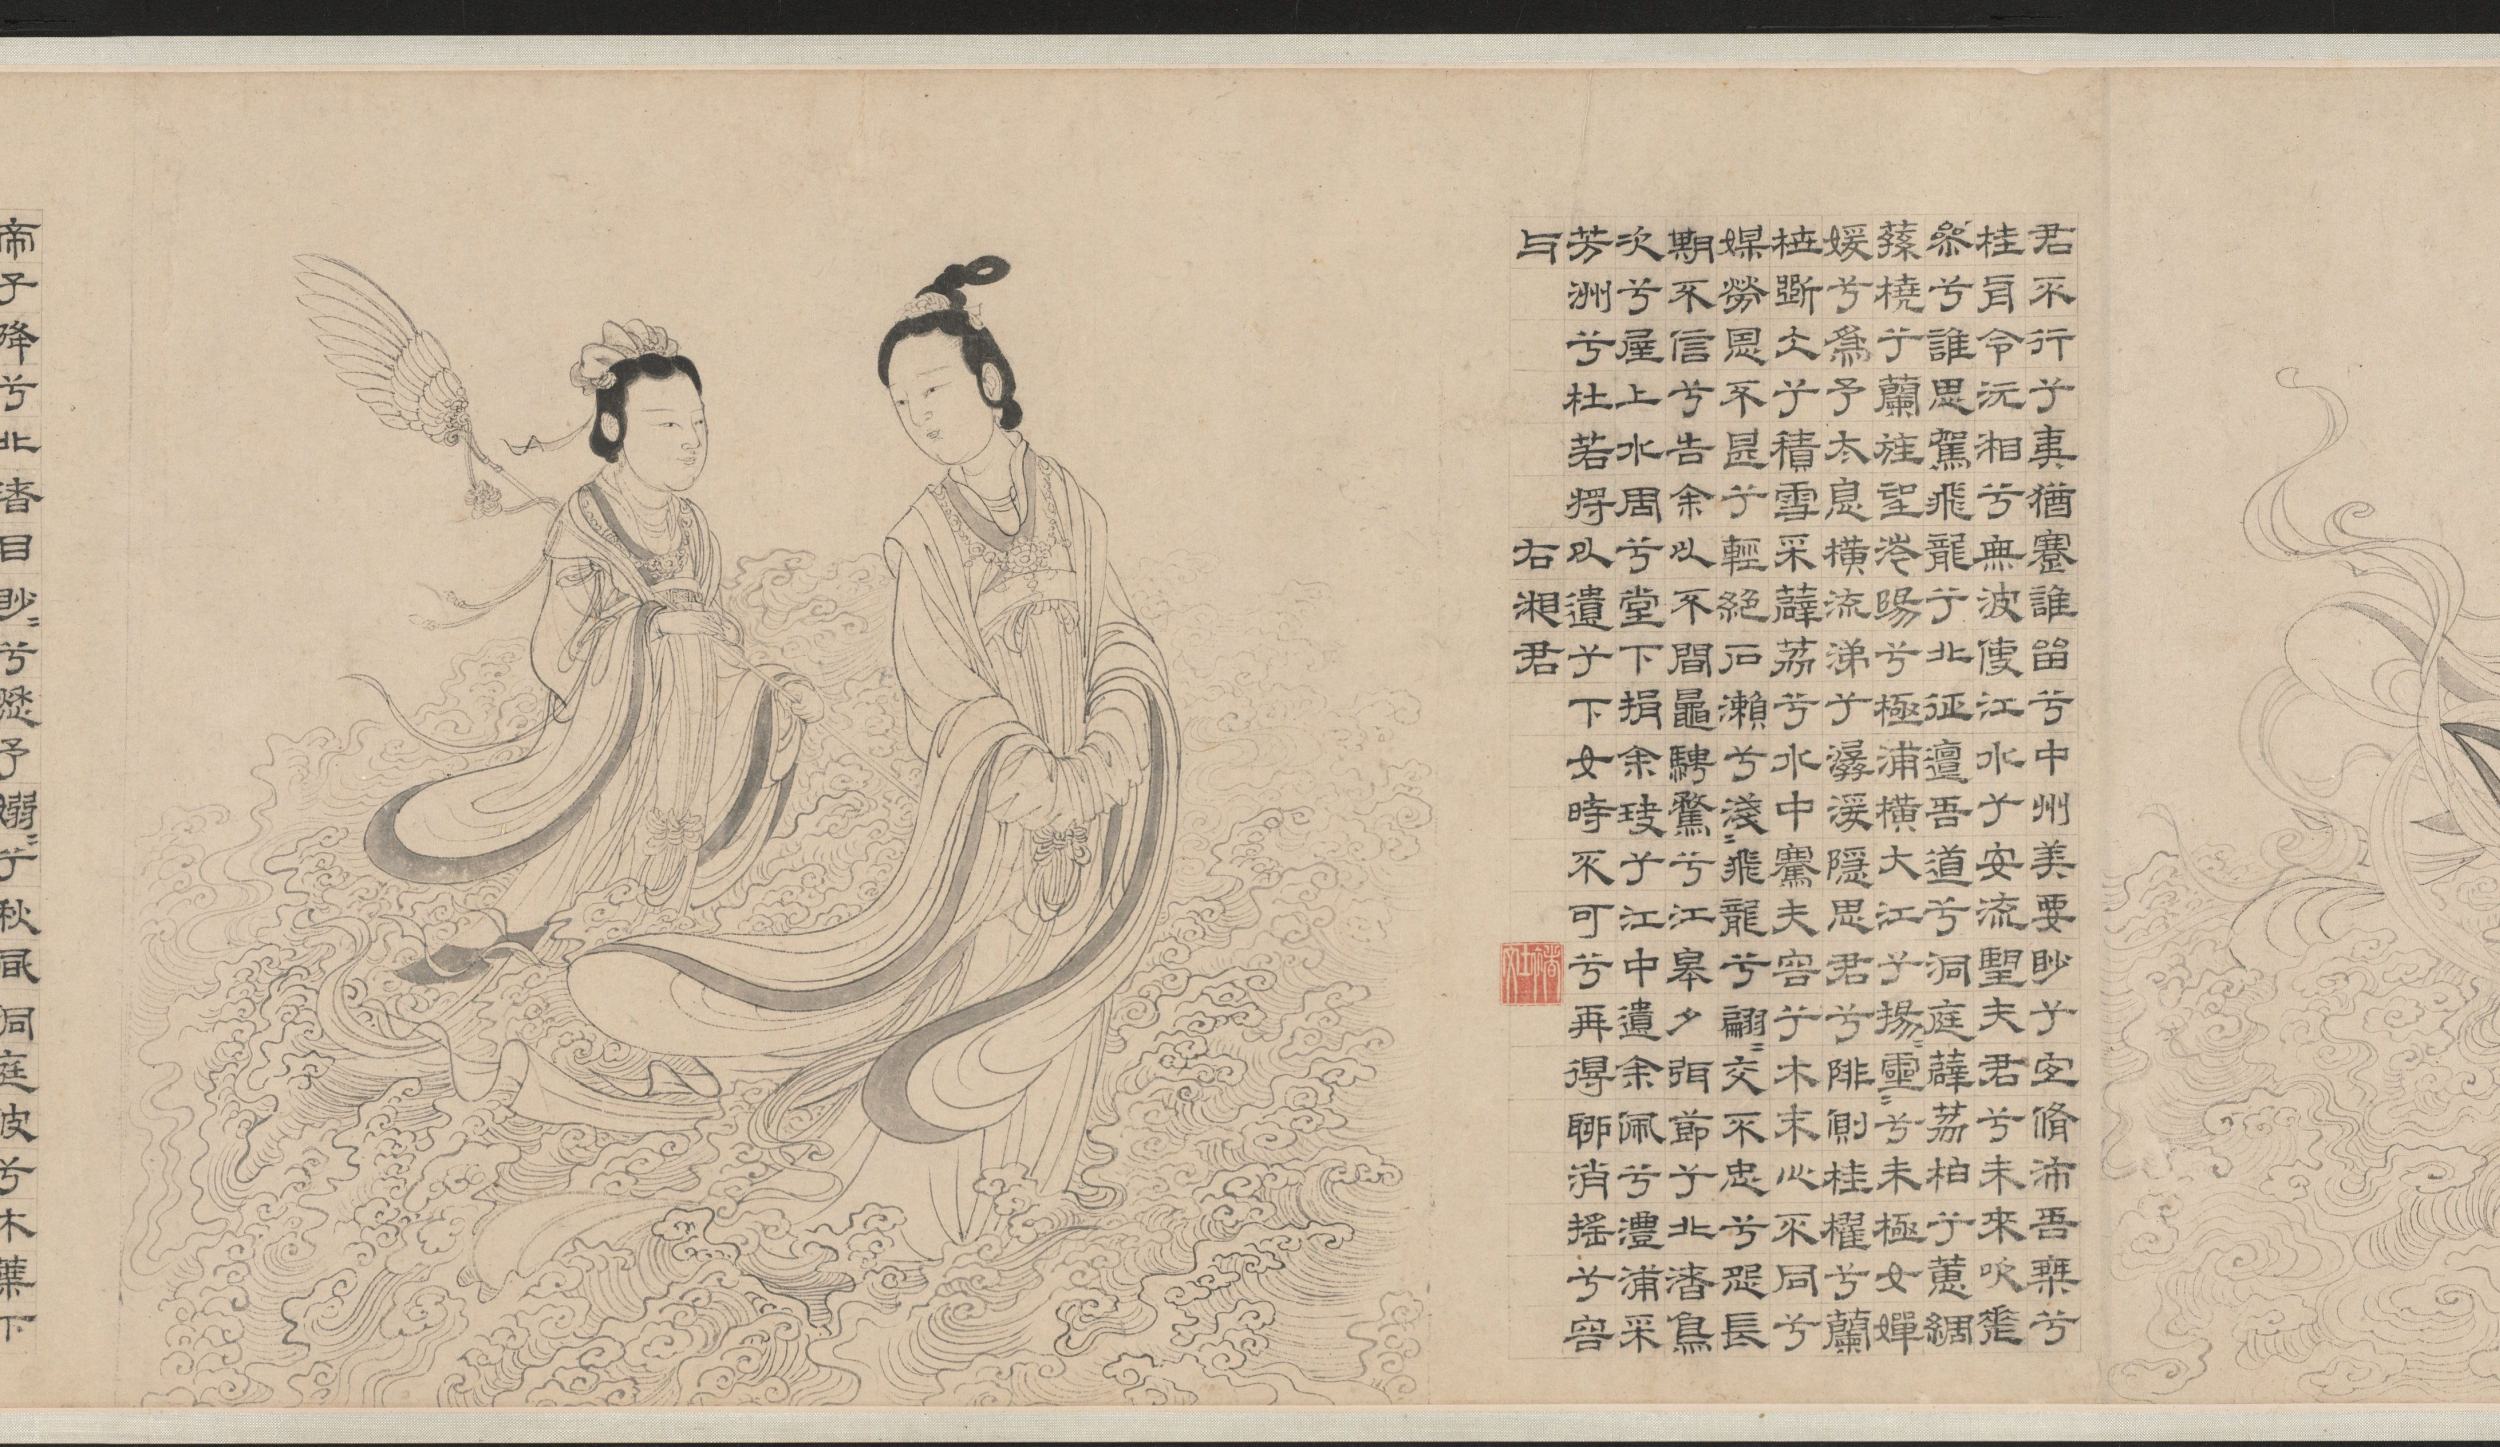 君不行兮夷猶蹇誰留兮中州美要眇兮宜脩沛吾乘兮
桂舟令沅湘兮無波使江水兮安流望夫君兮未來吹差
參兮誰思駕飛龍兮北征邅吾道兮洞庭薜荔柏兮蕙綢
蓀橈兮蘭旌望涔陽兮極浦橫大江兮揚〻靈〻兮未極女嬋
媛兮爲予太息橫流涕兮潺湲隱思君兮陫側桂櫂兮蘭
枻斲冰兮積雪采薜荔兮水中搴夫容兮木末心不同兮
媒勞恩不甚兮輕絕石瀨兮淺〻飛龍兮翩〻交不忠兮怨長
期不信兮告余以不閒鼂騁騖兮江皋夕弭節兮北渚鳥
次兮屋上水周兮堂下捐余玦兮江中遺余佩兮澧浦采
芳洲兮杜若將以遺兮下女時不可兮再得聊消搖兮容
与
右湘君
帝子降兮北渚目眇〻兮愁予嫋〻兮秋風洞庭波兮木葉下